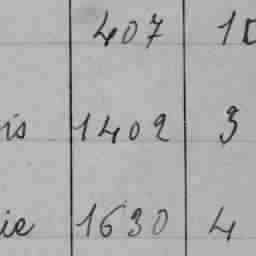 407 10
is 1402 3
ie 1630 4